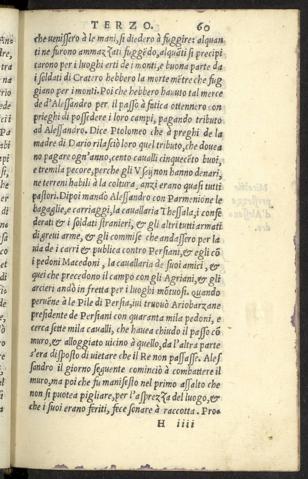 TERZO. 60
che venissero à le mani, si diedero à fuggire: alquan
ti ne furono ammazzati fuggẽdo, alquãti si precipi
tarono per i luoghi erti de i monti, e buona parte da
i soldati di Cratero hebbero la morte mẽtre che fug
giano per i monti. Poi che hebbero havuto tal merce
de d'Alessandro per il passo à fatica ottennero con
prieghi di possedere i loro campi, pagando tributo
ad Alessandro. Dice Ptolomeo che à preghi de la
madre di Dario rilasciò loro quel tributo, che doveа
no pagare ogn'anno, cento cavalli cinquecẽto buoi,
e tremila pecore, perche gli Vsÿ non hanno denari,
ne terreni habili à la coltura, anzi erano quasi tutti
pastori. Dipoi mando Alessandro con Parmenione le
bagaglie, e carriaggi, la cavallaria Thessala, i confe
derati & i soldati stranieri, & gli altri tutti armati
di grevi arme, & gli commise che andassero per la
via de i carri & publica contro Persiani, & egli cõ
i pedoni Macedoni, la cavallaria de suoi amici, &
quei che precedono il campo con gli Agriani, & gli
arcieri andò in fretta per i luoghi mõtuosi. quando
pervẽne à le Pile di Persia, ivi trovò Ariobarzane
presidente de Persiani con quaranta mila pedoni, e
cerca sette mila cavalli, che havea chiudo il passo cõ
muro, & alloggiato vicino à quello, da l'altra parte
s'era disposto di vietare che il Re non passasse. Ales
sandro il giorno seguente cominciò à combattere il
muro, ma poi che fu manifesto nel primo assalto che
non si puotea pigliare, per l'asprezza del luogo, &
che i suoi erano feriti, fece sonare à raccotta. Pro-
H iiii